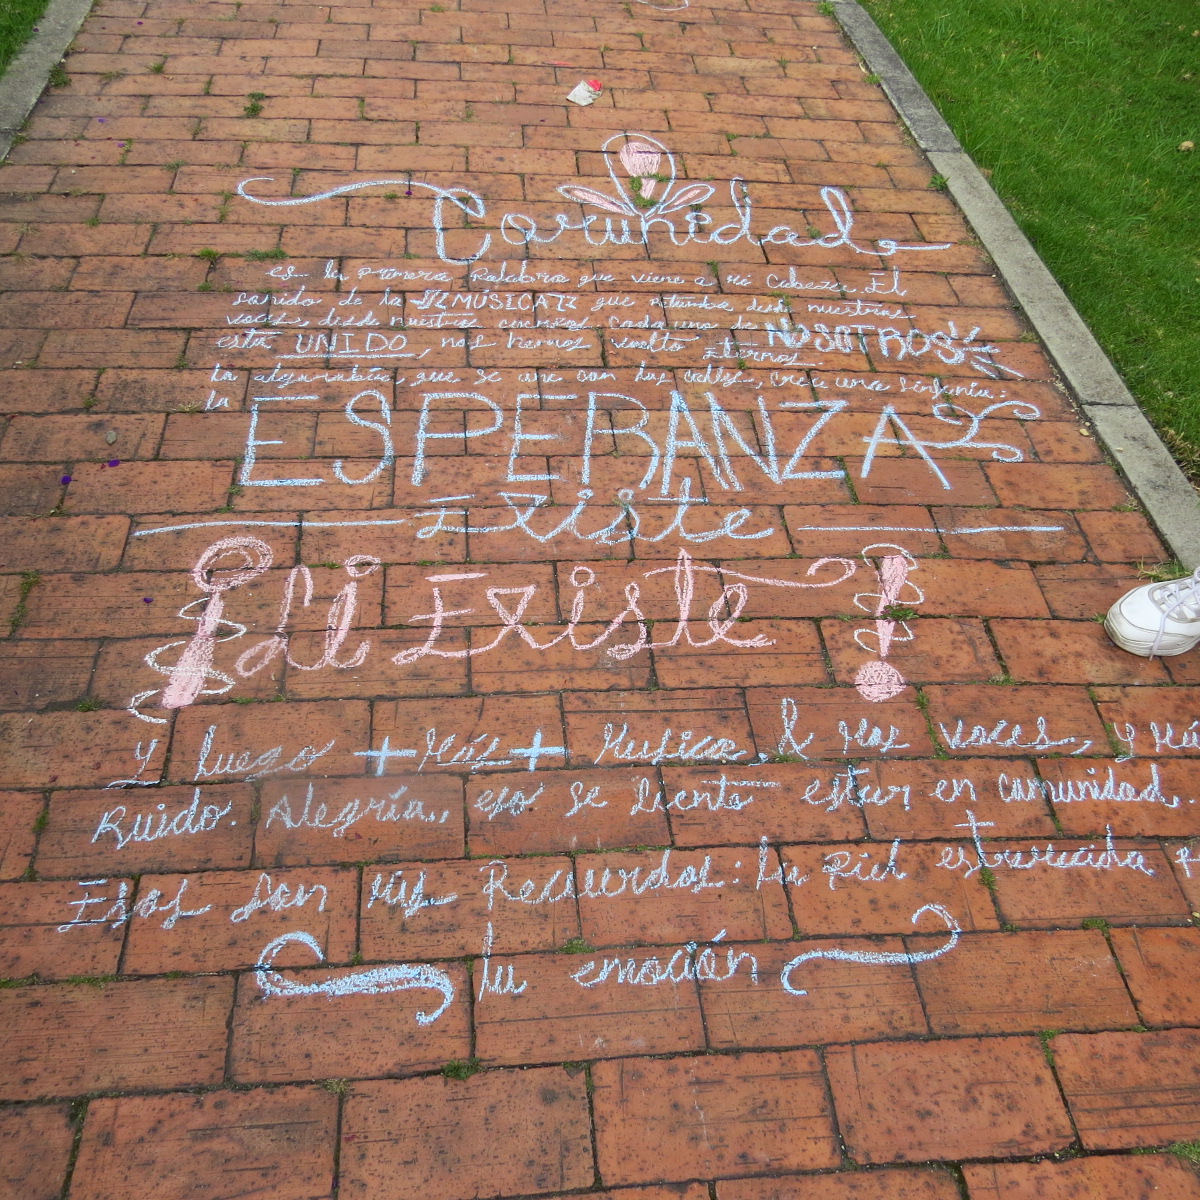 Comunidad
es la primera Palabra que viene a mi Cabeza. El
sonido de la MÚSICA que retumba desde nuestras
voces, desde nuestros cuerpos. Cada uno de NOSOTROS
está UNIDO, nos hemos vuelto Eternos
la algarabía que se une con las calles, crea una sinfonía:
la
ESPERANZA
Existe
¡Sí Existe!
Y luego + Más + Musica, & Mas voces, y Má
Ruido. Alegría, eso se siente estar en comunidad.
Esos son mis Recuerdos: la piel estremecida p
la emoción